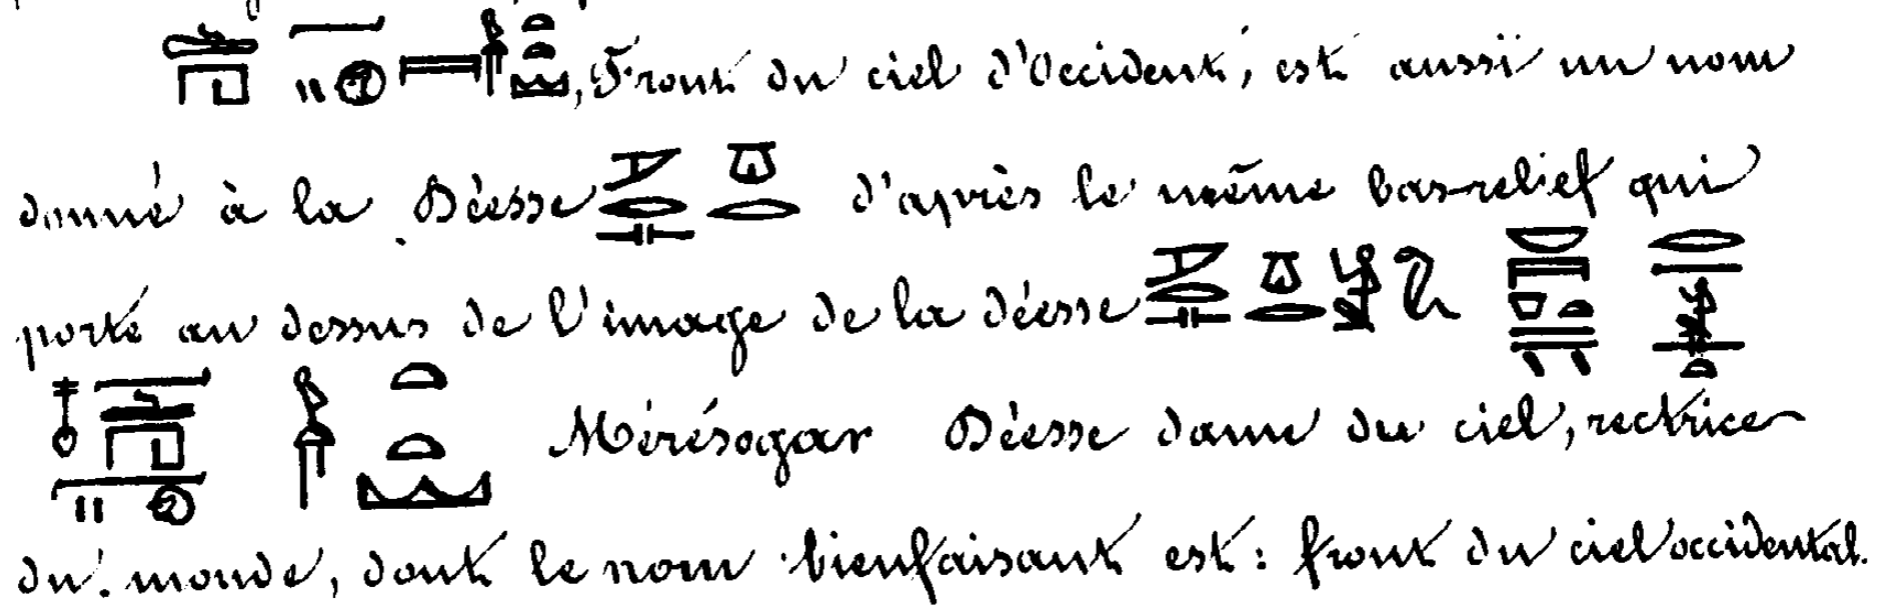 , Front du ciel d'Occident, est aussi un nom
donné à la Déesse d'après le même bas-relief qui
porte au dessus de l'image de la déesse
Mérésogar Déesse dame du ciel, rectrice
du monde, dont le nom bienfaisant est : front du ciel occidental.